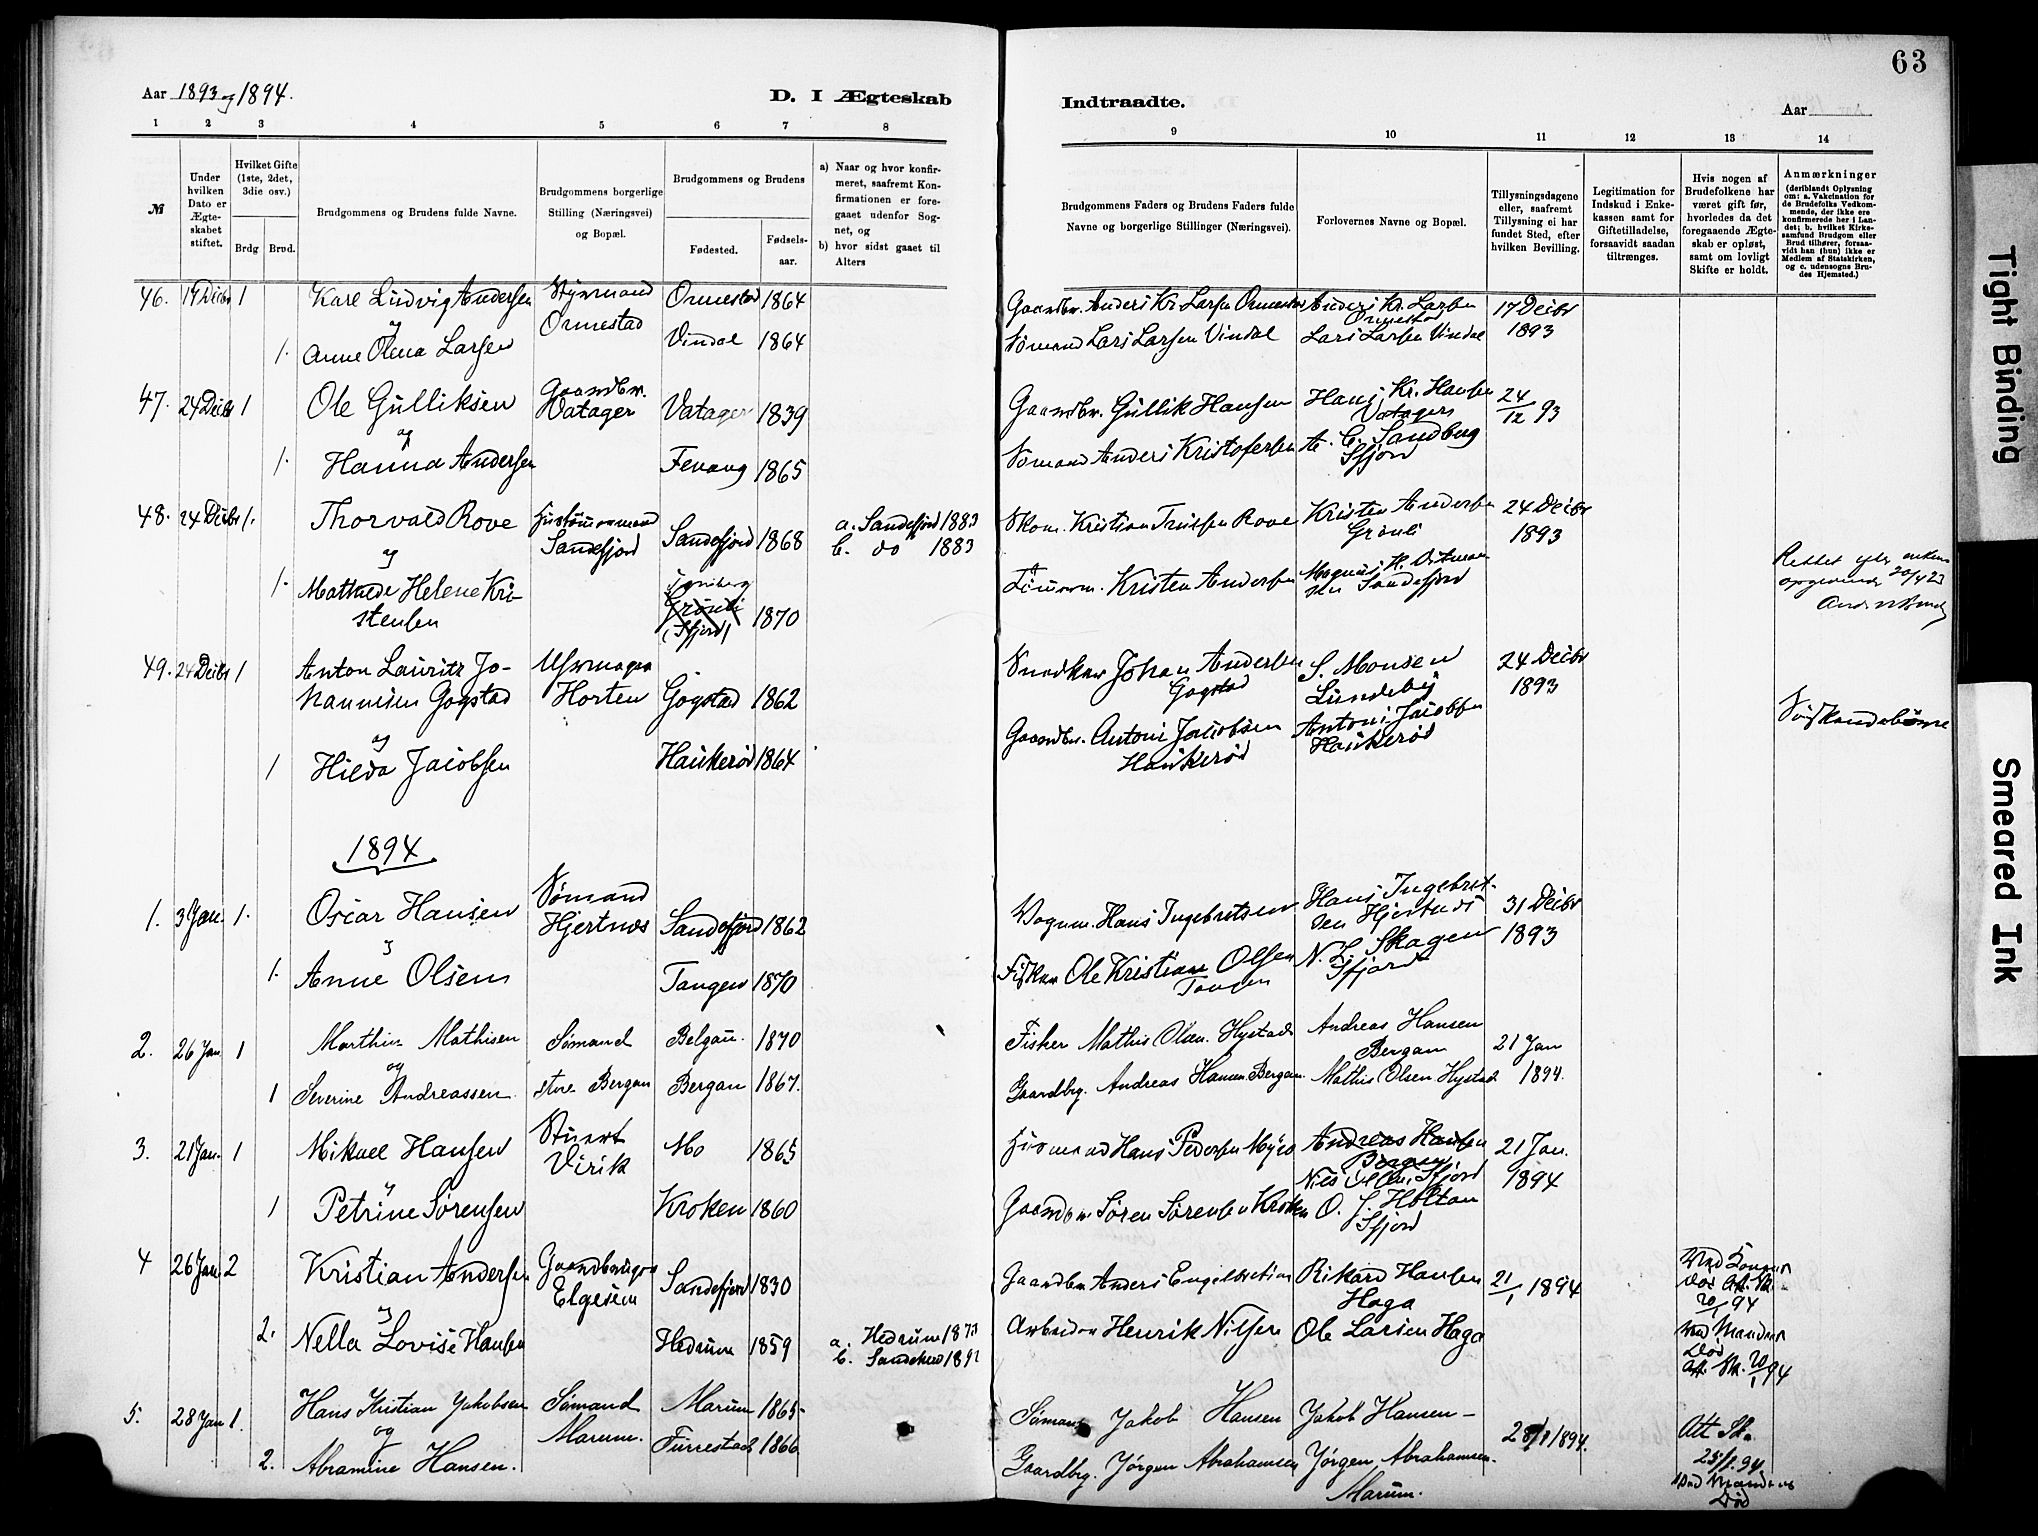 63
Aar 1893 og 1894.
D. I Ægteskab
Indtraadte.
Aar
1 2 3 4 5 6 7 8
9 10 11 12 13 14
№
Under hvilken Dato er Ægteskabet stiftet.
Hvilket Gifte (1ste, 2det, 3die osv.)
Brdg Brud.
Brudgommens og Brudens fulde Navne.
Brudgommens borgerlige Stilling (Næringsvei) og Bopæl.
Brudgommens og Brudens
Fødested.
Fødselsaar.
a) Naar og hvor konfirmeret, saafremt Konfirmationen er foregaaet udenfor Sognet, og
b) hvor sidst gaaet til Alters
Brudgommens Faders og Brudens Faders fulde Navne og borgerlige Stillinger (Næringsvei).
Forlovernes Navne og Bopæl.
Tillysningsdagene eller, saafremt Tillysning ei har fundet Sted, efter hvilken Bevilling.
Legitimation for Indskud i Enkekassen samt for Giftetilladelse, forsaavidt saadan tiltrænges.
Hvis nogen af Brudefolkene har været gift før, hvorledes da det foregaaende Ægteskab er opløst, samt om lovligt Skifte er holdt.
Anmærkninger
(deriblandt Oplysning om: a. Vakcination for de Brudefolks Vedkommende, der ikke ere konfirmerede her i Landet; b. hvilket Kirkesamfund Brudgom eller Brud tilhører, forsaavidt han (hun) ikke er Medlem af Statskirken, og c. udensogns Brudes Hjemsted.)
46. 17 Decbr 1 Karl Ludvig Andersen Styrmand Ormestad Ormestad 1864 Gaardbr. Anders Kr. Larsen Ormestad Anders Kr. Larsen Ormestad 17 Decbr 1893
og
1. Anne Olena Larsen Vindal 1864 Sømand Lars Larsen Vindal Lars Larsen Vindal
47. 24 Decbr 1 Ole Gulliksen Gaardbr. Vatager Vatager 1839 Gaardbr. Gullik Hansen Hans Kr. Hansen Vatager 24/12 93
og
1. Hanna Andersen Fevang 1865 Sømand Anders Kristofersen A. C. Sandberg Sfjord
48. 24 Decbr 1. Thorvald Rove Sandefjord Sandefjord 1868 a. Sandefjord 1883
b. do 1883 Kristian Rove Kristen Andersen Grønli 24 Decbr 1893
og
1. Mathilde Helene Kristensen Grønli (Sfjord) 1870 Kristen Andersen Magnus Sandefjord
Rettet
49. 24 Decbr 1 Anton Lauritz Johannesen Gogstad Horten Gogstad 1862 Snedker Johan Andersen Gogstad S. Monsen Lundeby 24 Decbr 1893
og
1 Hilda Jacobsen Haukerød 1864 Gaardbr. Antoni Jacobsen Haukerød Antoni Jacobsen Haukerød
Søskendebørn
1894
1. 3 Jan. 1. Oscar Hansen Sømand Hjertnes Sandefjord 1862 Vognm. Hans Ingebretsen Hans Ingebretsen Hjertnes 31 Decbr 1893
og
1. Anne Olsen Tangen 1870 Fisker Ole Kristian Olsen Tangen N. L. Skagen Sfjord
2. 26 Jan 1 Marthin Mathisen Sømand Bergan. 1870 Fisher Mathis Olsen Hystad Andreas Hansen Bergan 21 Jan
og
1 Severine Andreassen store Bergan Bergan 1867. Gaardbrg. Andreas Hansen Bergan. Mathis Olsen Hystad 1894.
3. 21 Jan. 1 Mikael Hansen Stuert Virik Mo 1865 Husmand Hans Pedersen Andreas Hansen Bergan 21 Jan. 1894
og
1 Petrine Sørensen Kroken 1860 Gaardbr Søren Sørensen Kroken O. J. Holtan Sfjord
4 26 Jan 2 Kristian Andersen Gaardbruger Elgesem Sandefjord 1830 Gaardbr Anders Engebretsen Rikard Hansen Haga 21/1 1894 Ved Konens Død Att. Sk. 20/1 94
og
2. Nella Lovise Hansen Hedrum 1859 a. Hedrum 1873
b. Sandeherd 189 Arbeider Henrik Nilsen Ole Larsen Haga Ved Mandens Død Att. Sk. 20/1 94
5. 28 Jan 1. Hans Kristian Jakobsen Sømand Marum. Marum 1865 Sømand Jakob Hansen Jakob Hansen 28/1 1894.
og
2. Abramine Hansen. Furrestad 1866 Gaardbrg. Jørgen Abrahamsen Jørgen Abrahamsen. Marum. Att Sk. 25/1.94 Ved Mandens Død
Tight Binding
Smeared Ink